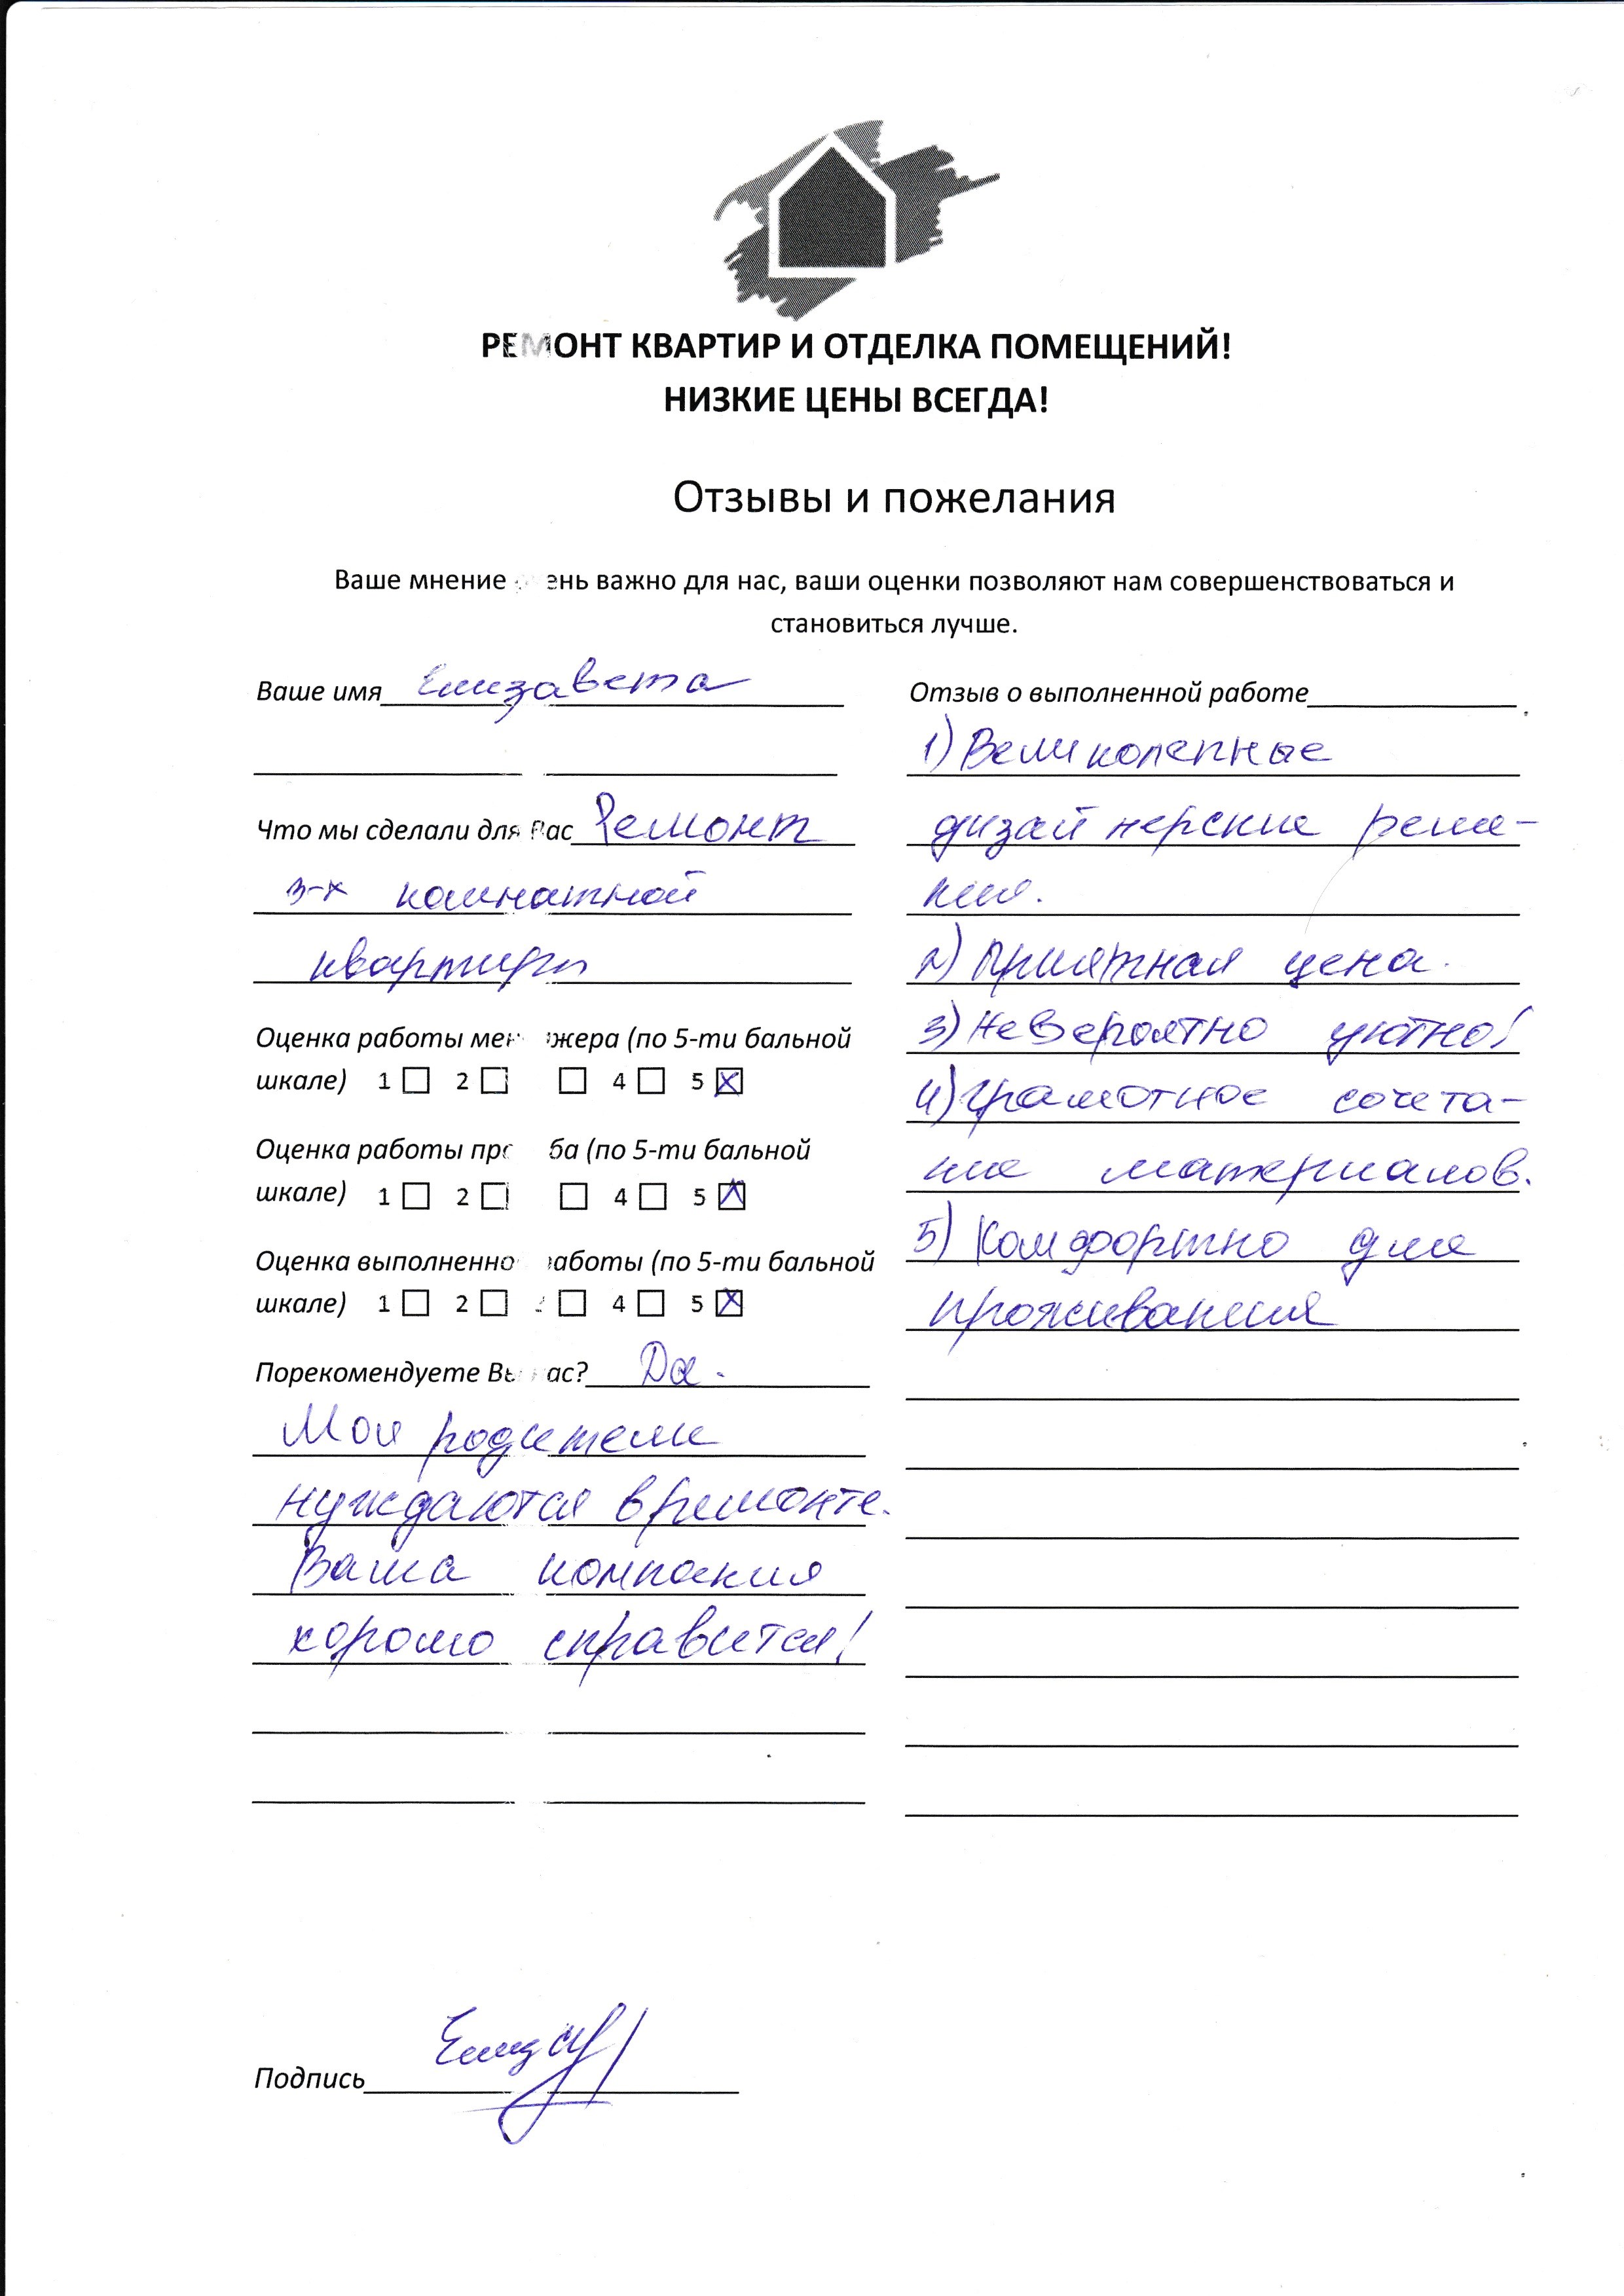 РЕМОНТ КВАРТИР И ОТДЕЛКА ПОМЕЩЕНИЙ!
НИЗКИЕ ЦЕНЫ ВСЕГДА!
Отзывы и пожелания
Ваше мнение очень важно для нас, ваши оценки позволяют нам совершенствоваться и
становиться лучше.
Ваше имя Елизавета
Что мы сделали для Вас Ремонт
3-х комнатной
квартиры
Оценка работы менеджера (по 5-ти бальной
шкале) 1 2 4 5
Оценка работы прораба (по 5-ти бальной
шкале) 1 2 4 5
Оценка выполненной работы (по 5-ти бальной
шкале) 1 2 3 4 5
Порекомендуете Вы нас? Да.
Мои родители
нуждаются в ремонте.
Ваша компания
хорошо справится!
Отзыв о выполненной работе
1) Великолепные
дизайнерские реше-
ния.
2) Приятная цена.
3) Невероятно уютно!
4) Грамотное сочета-
ние материалов.
5) Комфортно для
проживания
Подпись